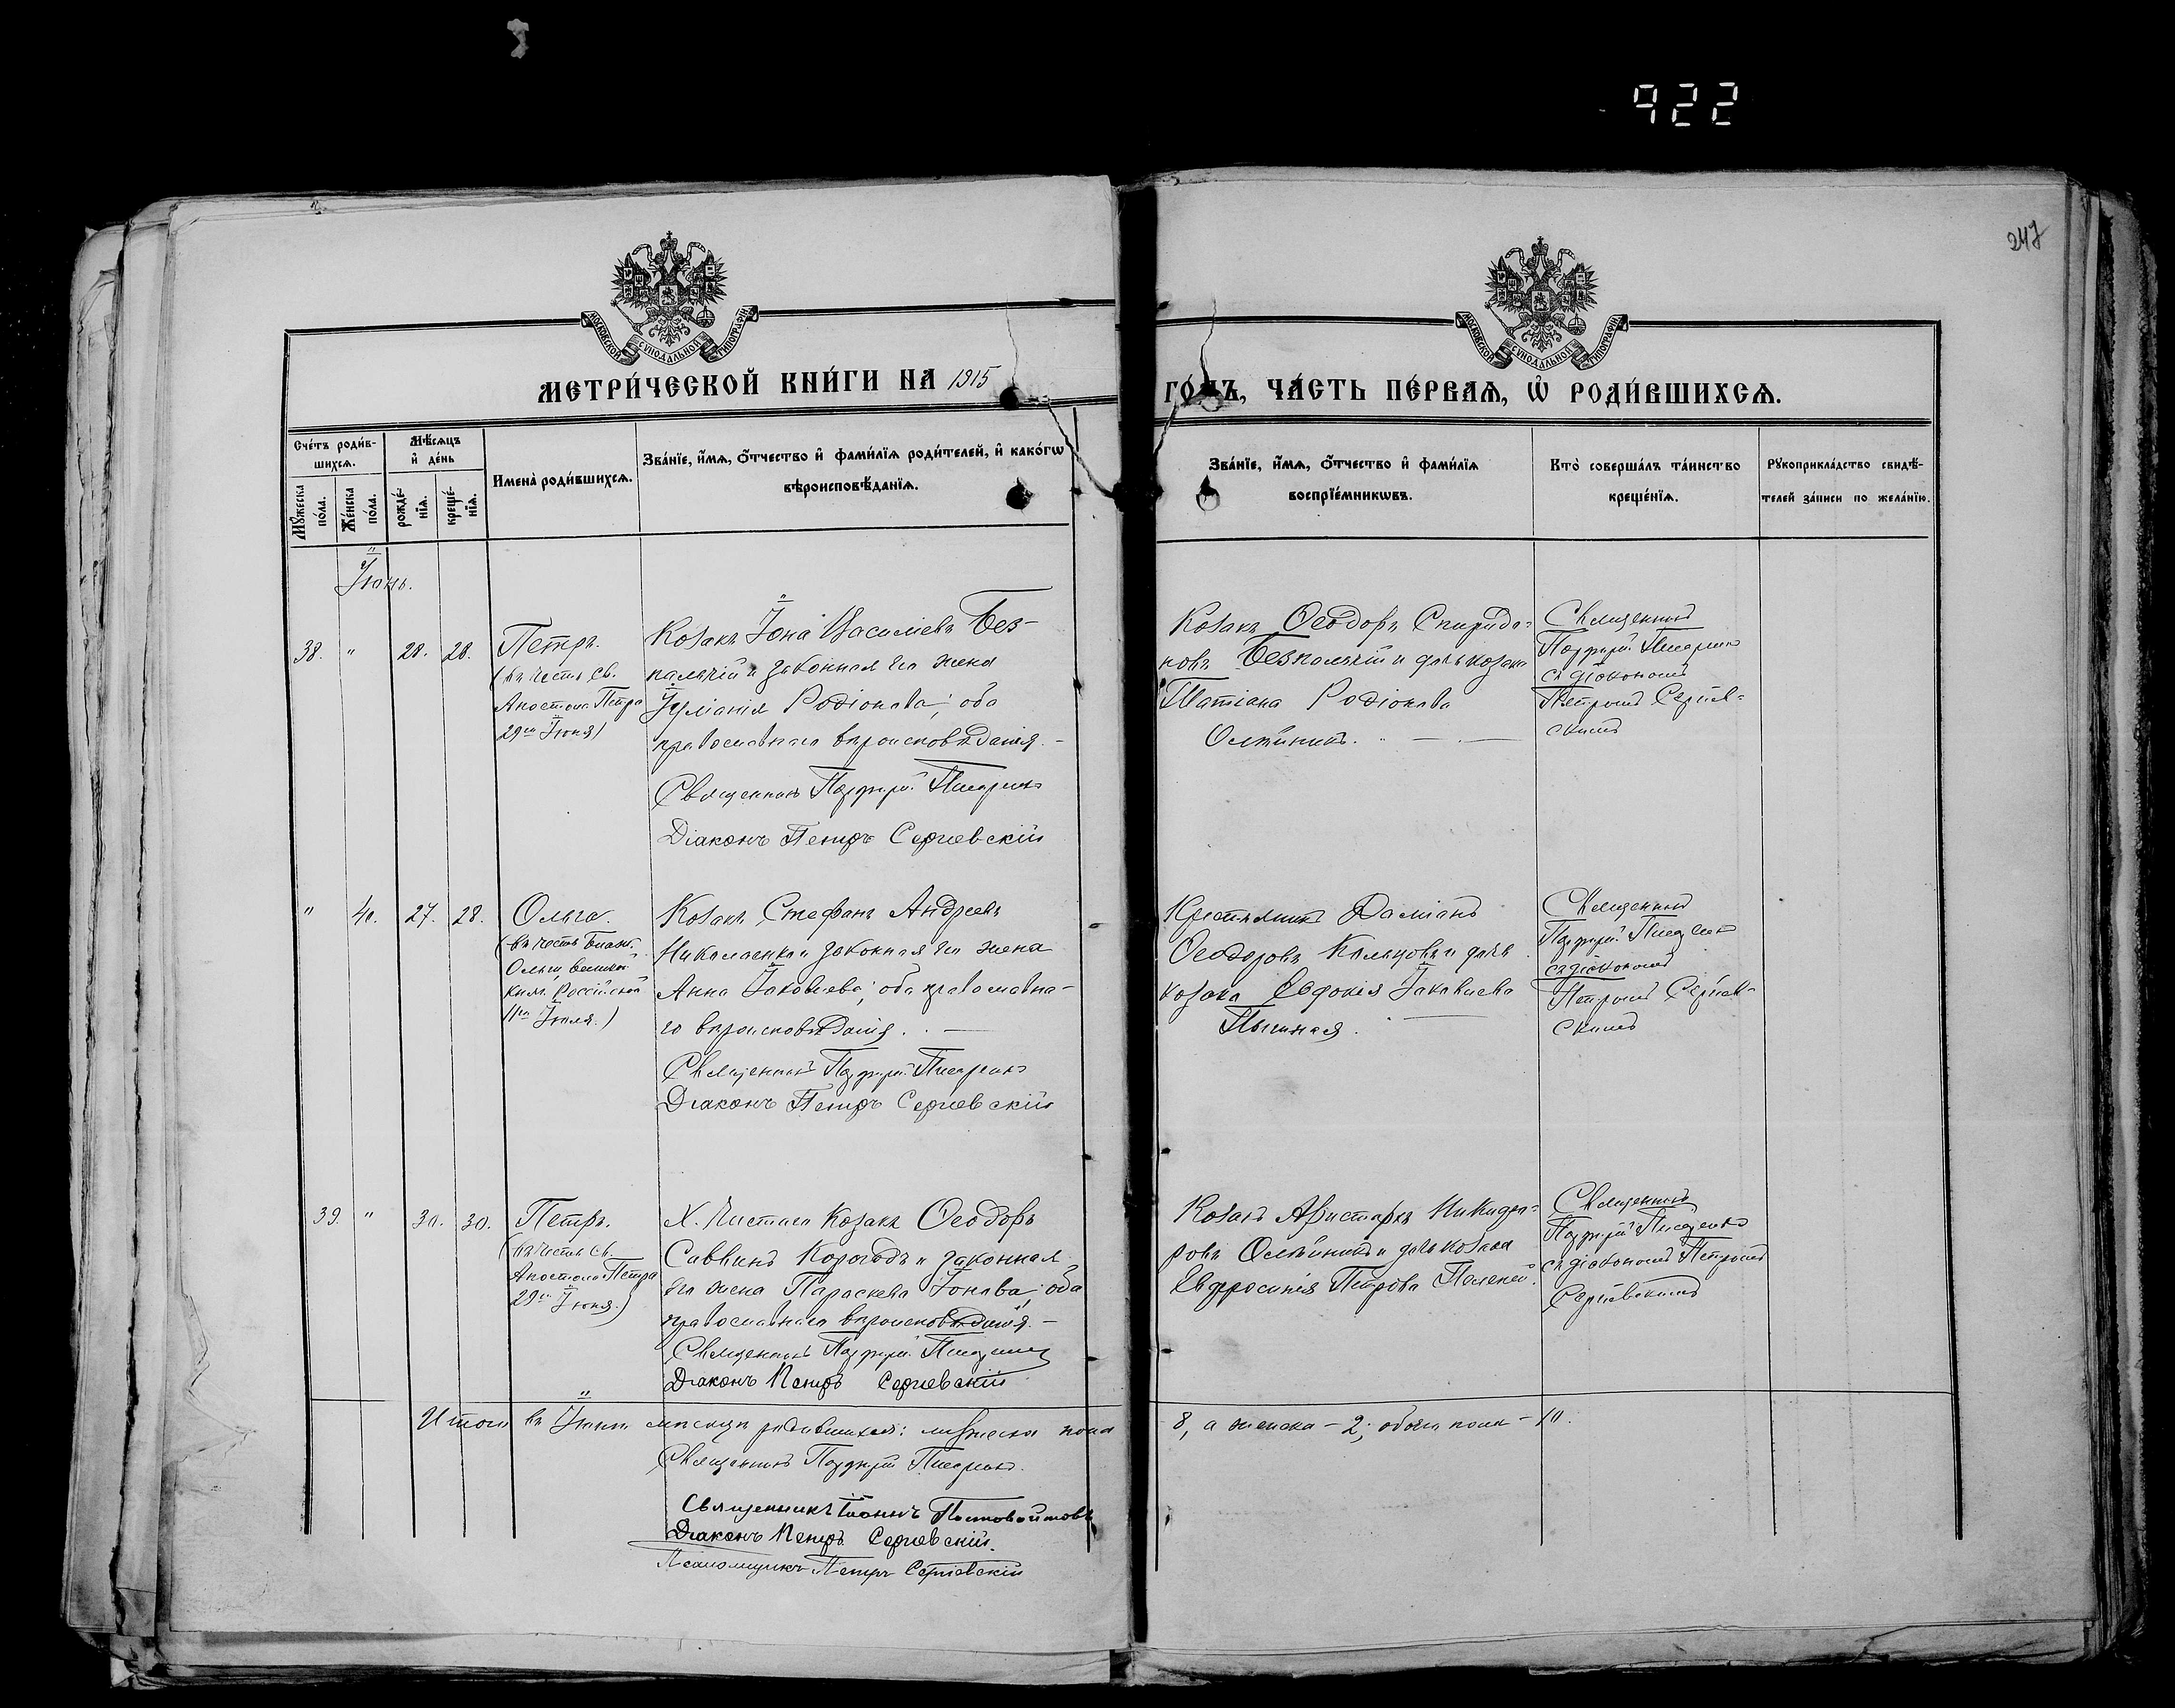 922
247
МОСКОВСКОЙ СУНОДАЛЬНОЙ ТИПОГРАФІИ
МОСКОВСКОЙ СУНОДАЛЬНОЙ ТИПОГРАФІИ
МЕТРИ́ЧЕСКОЙ КНИ́ГИ НА 1915
ГО́ДЪ, ЧА́СТЬ ПЕ́РВАѦ, Ѽ РОДИ́ВШИХСѦ.
Сче́тъ роди́в-
шихсѧ.
Мꙋ́жеска по́ла.
Же́нска по́ла.
Мѣ́сѧцъ
и҆ де́нь
рожде́-
нїѧ.
креще́-
нїѧ.
Имена̀ роди́вшихсѧ.
Зва́нїе, и҆́мѧ, ѻ҆́тчество и҆ фами́лїѧ роди́телей, и҆ како́гѡ
вѣроисповѣ́данїѧ.
Зва́нїе, и҆́мѧ, ѻ҆́тчество и҆ фами́лїѧ
воспрїе́мникѡвъ.
Кто̀ соверша́лъ та́инство
креще́нїѧ.
Рꙋкоприкла́дство свидѣ́-
телей за́писи по жела́нїю.
Іюнь.
38. " 28. 28.
Петръ.
(въ честь св.
Апостола Петра
29го Іюня)
Козакъ Іона Васильевъ Без-
палчій и законная его жена
Іуліанія Родіонова; оба
православнаго вѣроисповѣданія. –
Священникъ Порфирій
Діаконъ Петръ Сергіевскій
Козакъ Ѳеодоръ Спиридо-
новъ Безпалчій и дочь козака
Татіана Родіонова
Олѣйникъ.
Священникъ
Порфирій
съ діакономъ
Петромъ Сергіев-
скимъ
" 40. 27. 28.
Ольга.
(въ честь Блаж.
Ольги великой
княг. Россійской
11го Іюля.)
Козакъ Стефанъ Андреевъ
Николаенко и законная его жена
Анна Іаковлева; оба православна-
го вѣроисповѣданія. –
Священникъ Порфирій
Діаконъ Петръ Сергіевскій
Крестьянинъ Даміанъ
Ѳеодоровъ Кальцовъ и дочь
козака Евдокія Іаковлева
Священникъ
Порфирій
съ діакономъ
Петромъ Сергіев-
скимъ
39. " 30. 30.
Петръ.
(въ честь св.
Апостола Петра
29го Іюня.)
Х. Чистаго Козакъ Ѳеодоръ
Саввинъ Корогодъ и законная
его жена Параскева Іонова; оба
православнаго вѣроисповѣданія. –
Священникъ Порфирій
Діаконъ Петръ Сергіевскій
Козакъ Аристархъ Никифо-
ровъ Олѣйникъ и дочь козака
Евфросинія Петрова
Священникъ
Порфирій
съ діакономъ Петромъ
Сергіевскимъ
Итого въ Іюнѣ мѣсяцѣ родившихся: мужеска пола
8, а женска – 2; обоего пола – 10.
Священникъ Порфирій
Священникъ Іоаннъ Постовойтовъ
Діаконъ Петръ Сергіевскій.
Псаломщикъ Петръ Сергіевскій